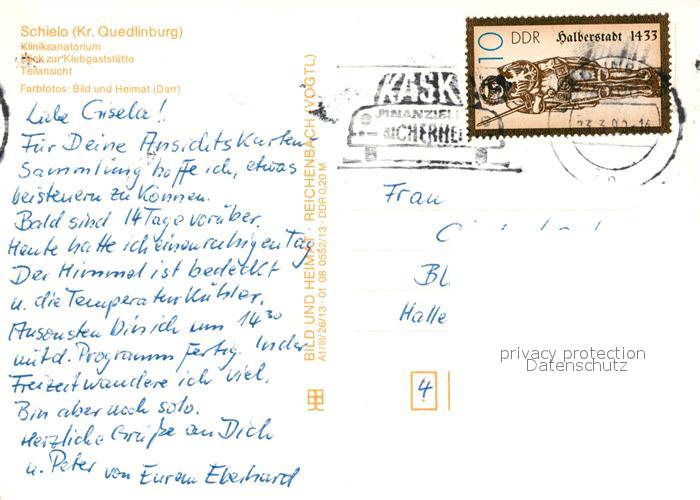 Schielo (Kr. Quedlinburg)
Kliniksanatorium
Blick zur Klubgaststätte
Teilansicht
Farbfotos: Bild und Heimat (Darr)
Liebe Gisela!
Für Deine Ansichtskarten
Sammlung hoffe ich, etwas
beisteuern zu können.
Bald sind 14 Tage vorüber.
Heute hatte ich einen ruhigen Tag
Der Himmel ist bedeckt
u. die Temperatur kühler.
Ansonsten bin ich um 14³⁰
mit d. Programm fertig. In der
Freizeit wandere ich viel.
Bin aber noch solo.
Herzliche Grüße an Dich
u. Peter von Eurem Eberhard
BILD UND HEIMAT · REICHENBACH (VOGTL)
A1/III/26/13 · 01 08 0552/13 · DDR 0,20 M
10 DDR Halberstadt 1433
KASK
FINANZIELLE
SICHERHEIT
Frau
Bl
Halle
4
privacy protection
Datenschutz